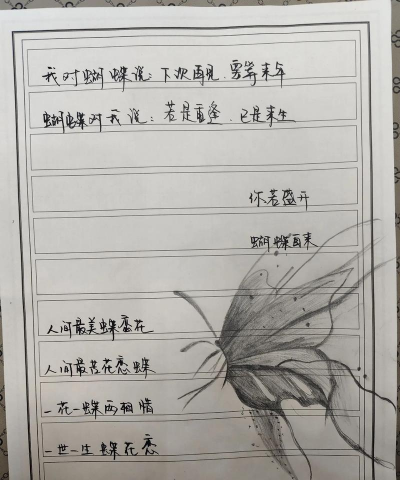 我对蝴蝶说：下次再见，要等来年
蝴蝶对我说：若是重逢，已是来生
你若盛开
蝴蝶再来
人间最美蝶恋花
人间最苦花恋蝶
一花一蝶两相情
一世一生蝶花恋